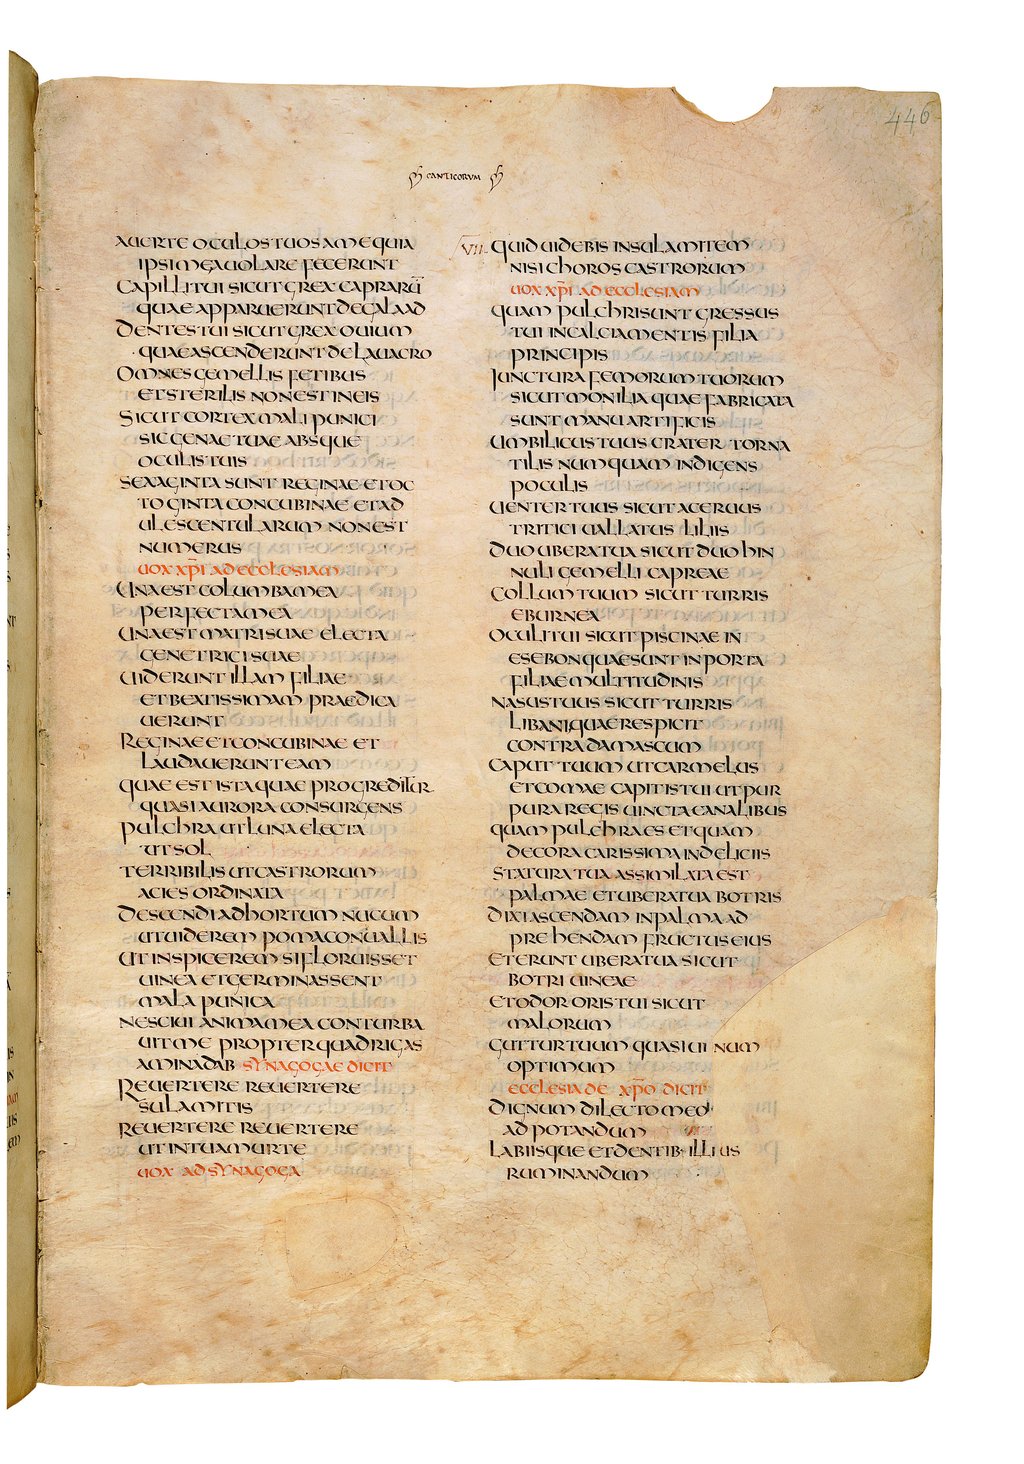 446
CANTICORUM
AUERTE OCULOS TUOS A ME QUIA
IPSI ME AUOLARE FECERUNT
CAPILLI TUI SICUT GREX CAPRARŪ
QUAE APPARUERUNT DE GALAAD
DENTES TUI SICUT GREX OUIUM
QUAE ASCENDERUNT DE LAUACRO
OMNES GEMELLIS FETIBUS
ET STERILIS NON EST IN EIS
SICUT CORTEX MALI PUNICI
SIC GENAE TUAE ABSQUE
OCULIS TUIS
SEXAGINTA SUNT REGINAE ET OC
TOGINTA CONCUBINAE ET AD
ULESCENTULARUM NON EST
NUMERUS
UOX XP̄I AD ECCLESIAM
UNA EST COLUMBA MEA
PERFECTA MEA
UNA EST MATRI SUAE ELECTA
GENETRICI SUAE
UIDERUNT ILLAM FILIAE
ET BEATISSIMAM PRAEDICA
UERUNT
REGINAE ET CONCUBINAE ET
LAUDAUERUNT EAM
QUAE EST ISTA QUAE PROGREDITUR
QUASI AURORA CONSURGENS
PULCHRA UT LUNA ELECTA
UT SOL
TERRIBILIS UT CASTRORUM
ACIES ORDINATA
DESCENDI AD HORTUM NUCUM
UT UIDEREM POMA CONUALLIS
UT INSPICEREM SI FLORUISSET
UINEA ET GERMINASSENT
MALA PUNICA
NESCIUI ANIMA MEA CONTURBA
UIT ME PROPTER QUADRIGAS
AMINADAB SYNAGOGAE DICIT
REUERTERE REUERTERE
SULAMITIS
REUERTERE REUERTERE
UT INTUAMUR TE
UOX AD SYNAGOGA
VII QUID UIDEBIS IN SULAMITEM
NISI CHOROS CASTRORUM
UOX XP̄I AD ECCLESIAM
QUAM PULCHRI SUNT GRESSUS
TUI IN CALCIAMENTIS FILIA
PRINCIPIS
JUNCTURA FEMORUM TUORUM
SICUT MONILIA QUAE FABRICATA
SUNT MANU ARTIFICIS
UMBILICUS TUUS CRATER TORNA
TILIS NUMQUAM INDIGENS
POCULIS
UENTER TUUS SICUT ACERUUS
TRITICI UALLATUS LILIIS
DUO UBERA TUA SICUT DUO HIN
NULI GEMELLI CAPREAE
COLLUM TUUM SICUT TURRIS
EBURNEA
OCULI TUI SICUT PISCINAE IN
ESEBON QUAE SUNT IN PORTA
FILIAE MULTITUDINIS
NASUS TUUS SICUT TURRIS
LIBANI QUAE RESPICIT
CONTRA DAMASCUM
CAPUT TUUM UT CARMELUS
ET COMAE CAPITIS TUI UT PUR
PURA REGIS UINCTA CANALIBUS
QUAM PULCHRA ES ET QUAM
DECORA CARISSIMA IN DELICIIS
STATURA TUA ASSIMILATA EST
PALMAE ET UBERA TUA BOTRIS
DIXI ASCENDAM IN PALMA AD
PREHENDAM FRUCTUS EIUS
ET ERUNT UBERA TUA SICUT
BOTRI UINEAE
ET ODOR ORIS TUI SICUT
MALORUM
GUTTUR TUUM QUASI UINUM
OPTIMUM
ECCLESIA DE XP̄O DICIT
DIGNUM DILECTO MEO
AD POTANDUM
LABIISQUE ET DENTIB· ILLIUS
RUMINANDUM